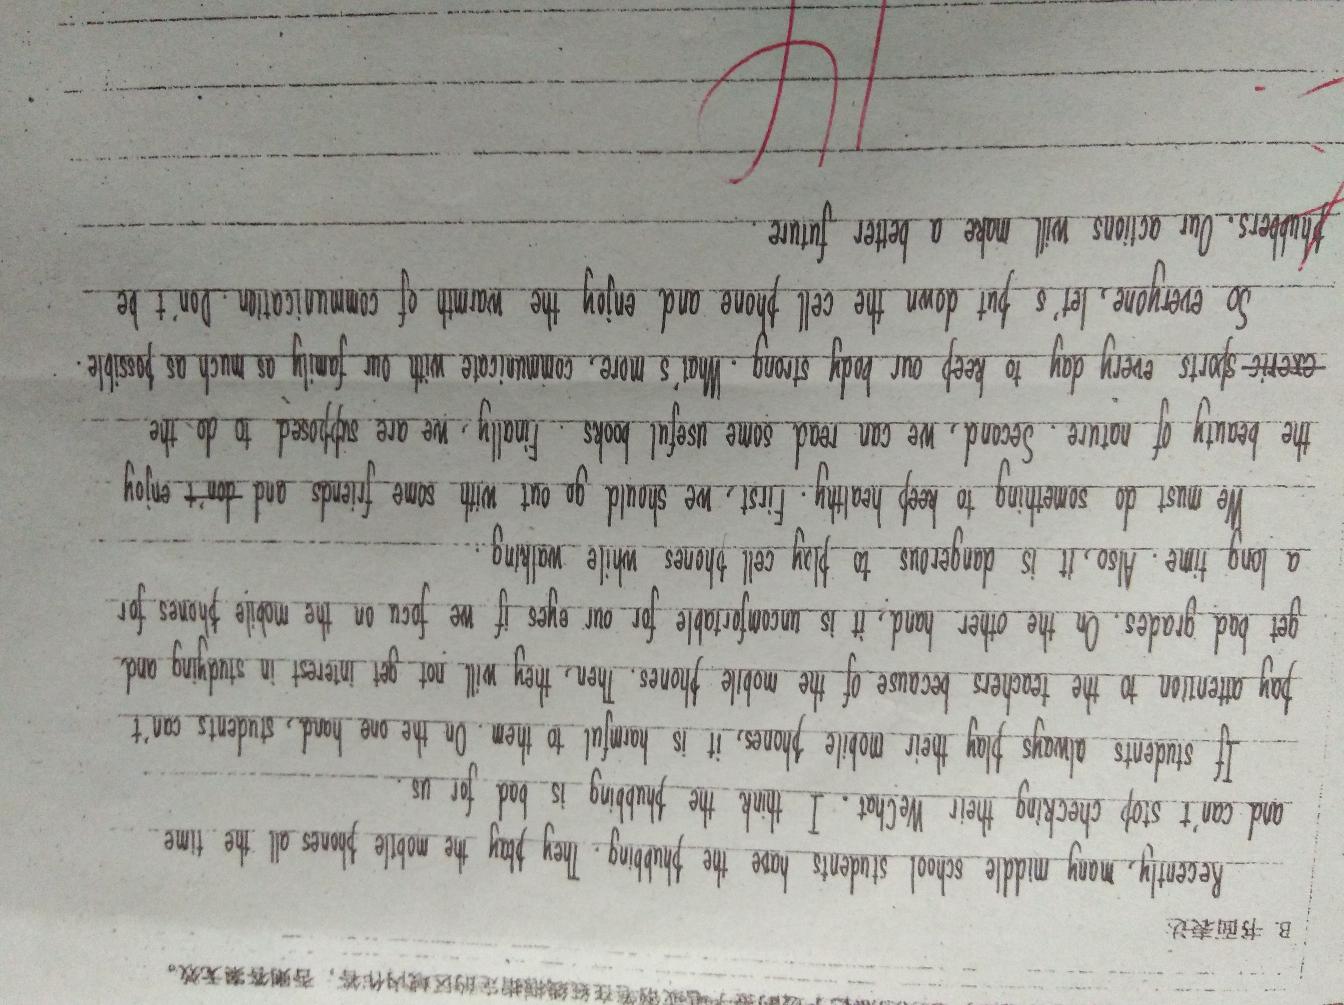 在红线框指定的区域内作答，否则答案无效。
B. 书面表达
Recently, many middle school students have the phubbing. They play the mobile phones all the time
and can't stop checking their WeChat. I think the phubbing is bad for us.
If students always play their mobile phones, it is harmful to them. On the one hand, students can't
pay attention to the teachers because of the mobile phones. Then, they will not get interest in studying and
get bad grades. On the other hand, it is uncomfortable for our eyes if we focu on the mobile phones for
a long time. Also, it is dangerous to play cell phones while walking.
We must do something to keep healthy. First, we should go out with some friends and don't enjoy
the beauty of nature. Second, we can read some useful books. Finally, we are supposed to do the
exeric sports every day to keep our body strong. What's more, communicate with our family as much as possible.
So everyone, let's put down the cell phone and enjoy the warmth of communication. Don't be
phubbers. Our actions will make a better future.